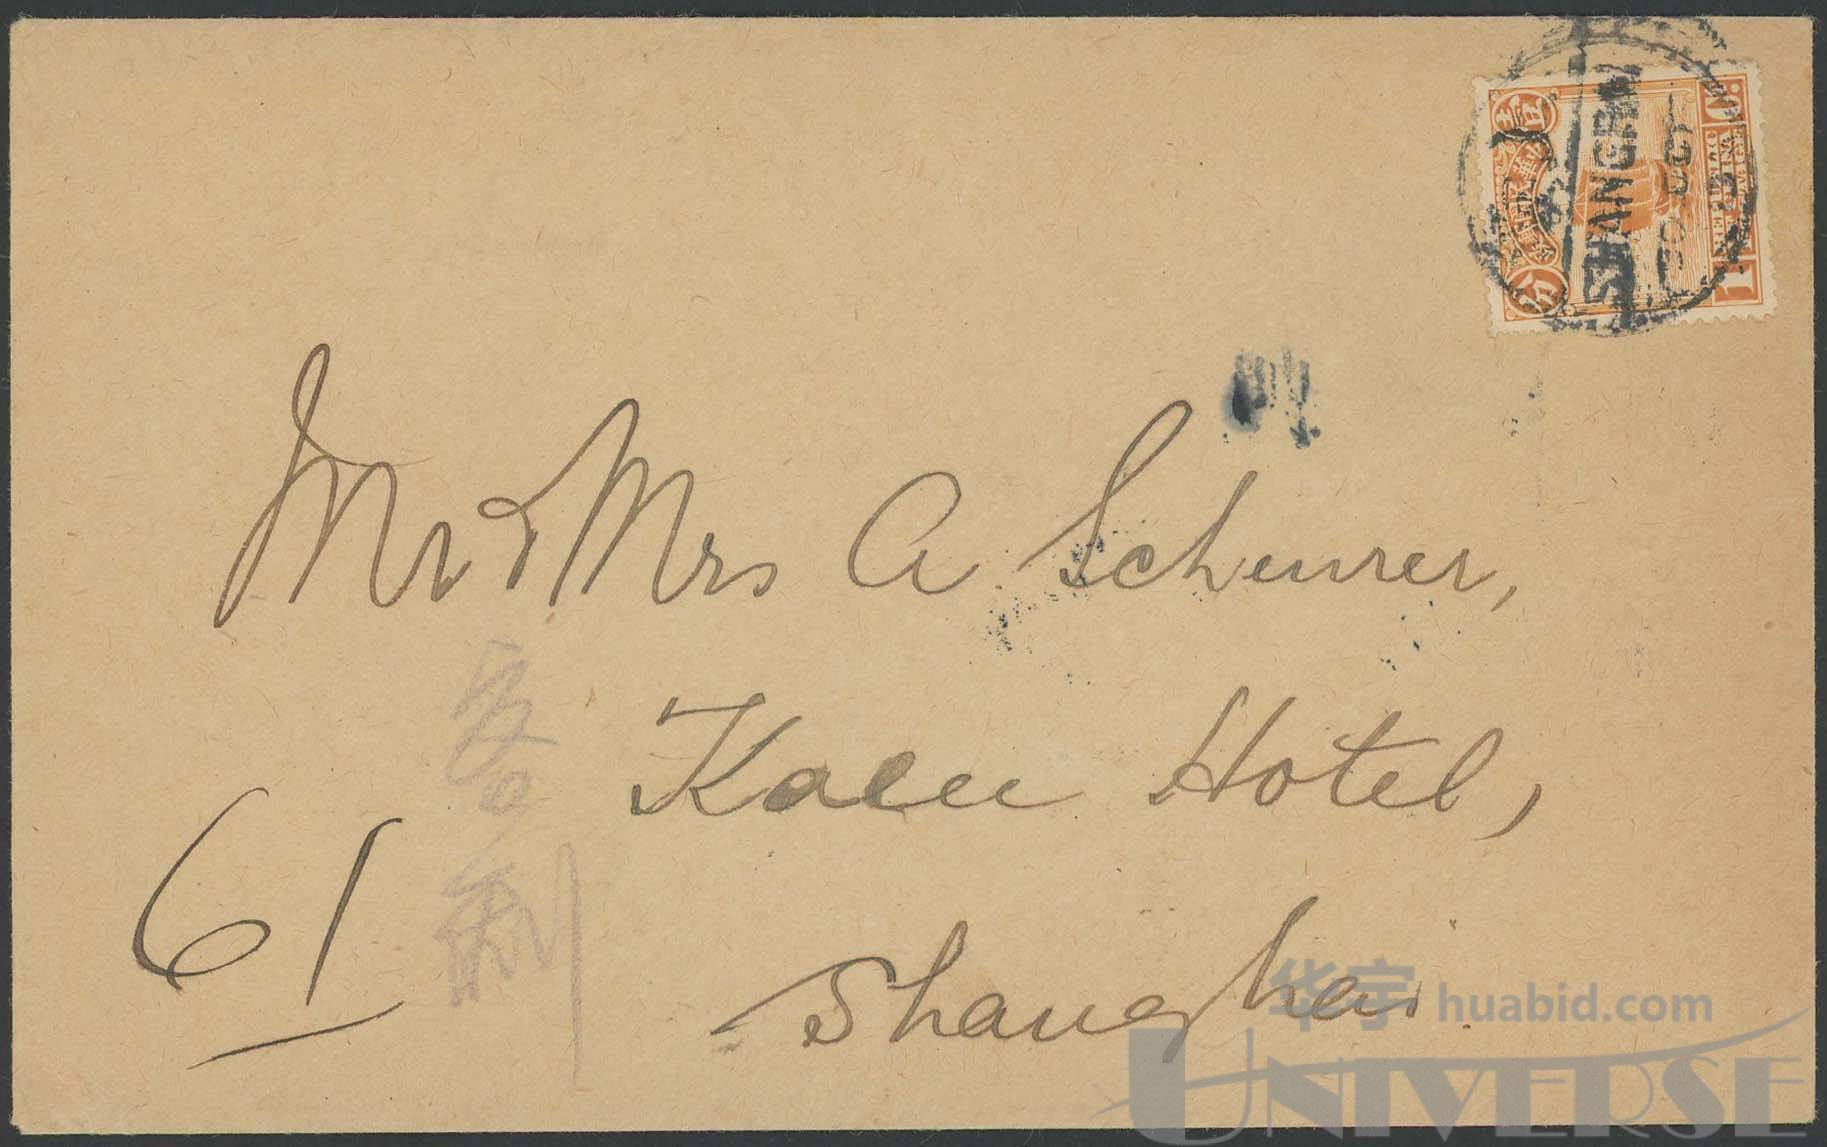 SHANGHAI
壹
中華民國郵政
分
1
Mr & Mrs A Scheurer,
Kalee Hotel,
Shanghai.
61
客利
华宇 huabid.com
UNIVERSE